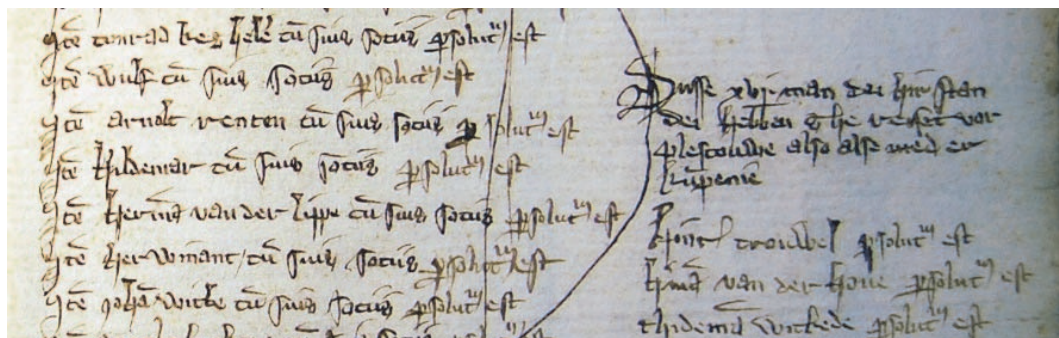 Itē conrad keghelē cū suis sociis psolutū est
Itē wulf cū suis sociis psolutū est
Itē arnolt renten cū suis sociis psolutū est
Itē hildemar cū suis sociis psolutū est
Itē hermā van der lippe cū suis sociis psolutū est
Itē her winant cū suis sociis psolutū est
Itē johā witte cū suis sociis psolutū est
Dusse xvj man dei hir stan
dei hebben ghe reiset vor
plescouwe also alse med er
kūpenie
trouwel psolutū est
van der houe psolutū est
thidemā wickede psolutū est